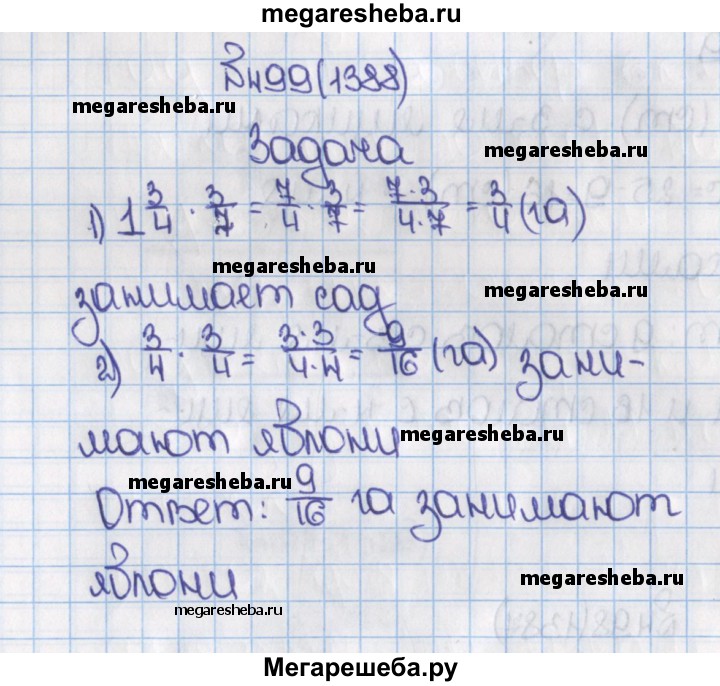 megaresheba.ru
№499(1388)
megaresheba.ru
Задача
megaresheba.ru
1) 1 3/4 · 3/7 = 7/4 · 3/7 = 7·3/4·7 = 3/4 (га)
megaresheba.ru
занимает сад
megaresheba.ru
2) 3/4 · 3/4 = 3·3/4·4 = 9/16 (га) зани-
мают яблони
megaresheba.ru
megaresheba.ru
Ответ: 9/16 га занимают
яблони
megaresheba.ru
megaresheba.ru
Мегарешеба.ру